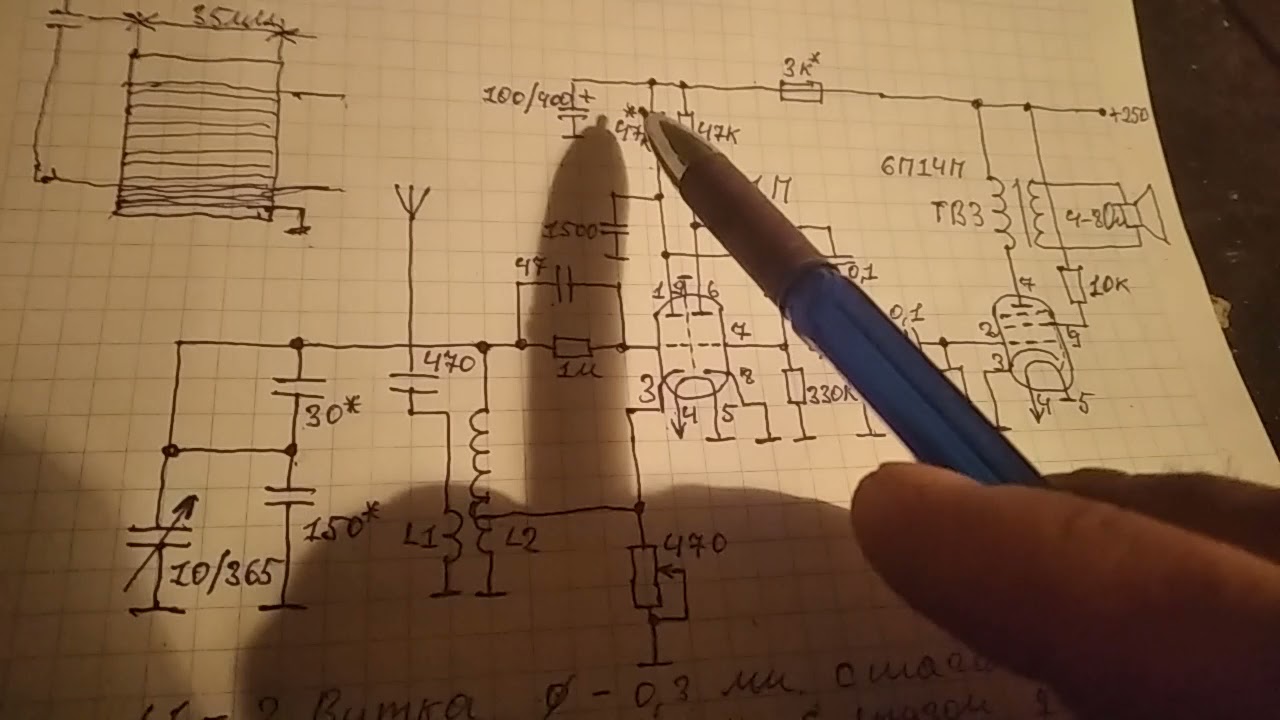 35мм
100/400
+
*
47к
47К
3к*
+250
6П14П
ТВЗ
4-8Ом
1500
47
1М
1
9
6
7
3
4
5
8
0,1
330К
0,1
7
2
3
9
4
5
10к
470
30*
150*
10/365
L1
L2
470
Витка ф - 0,3 мм.